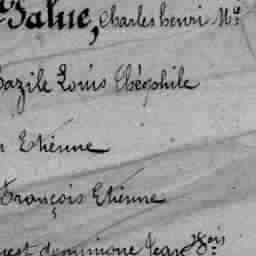 Charles henri M.
Bazile Louis Théophile
Etienne
François Etienne
dominique Jean